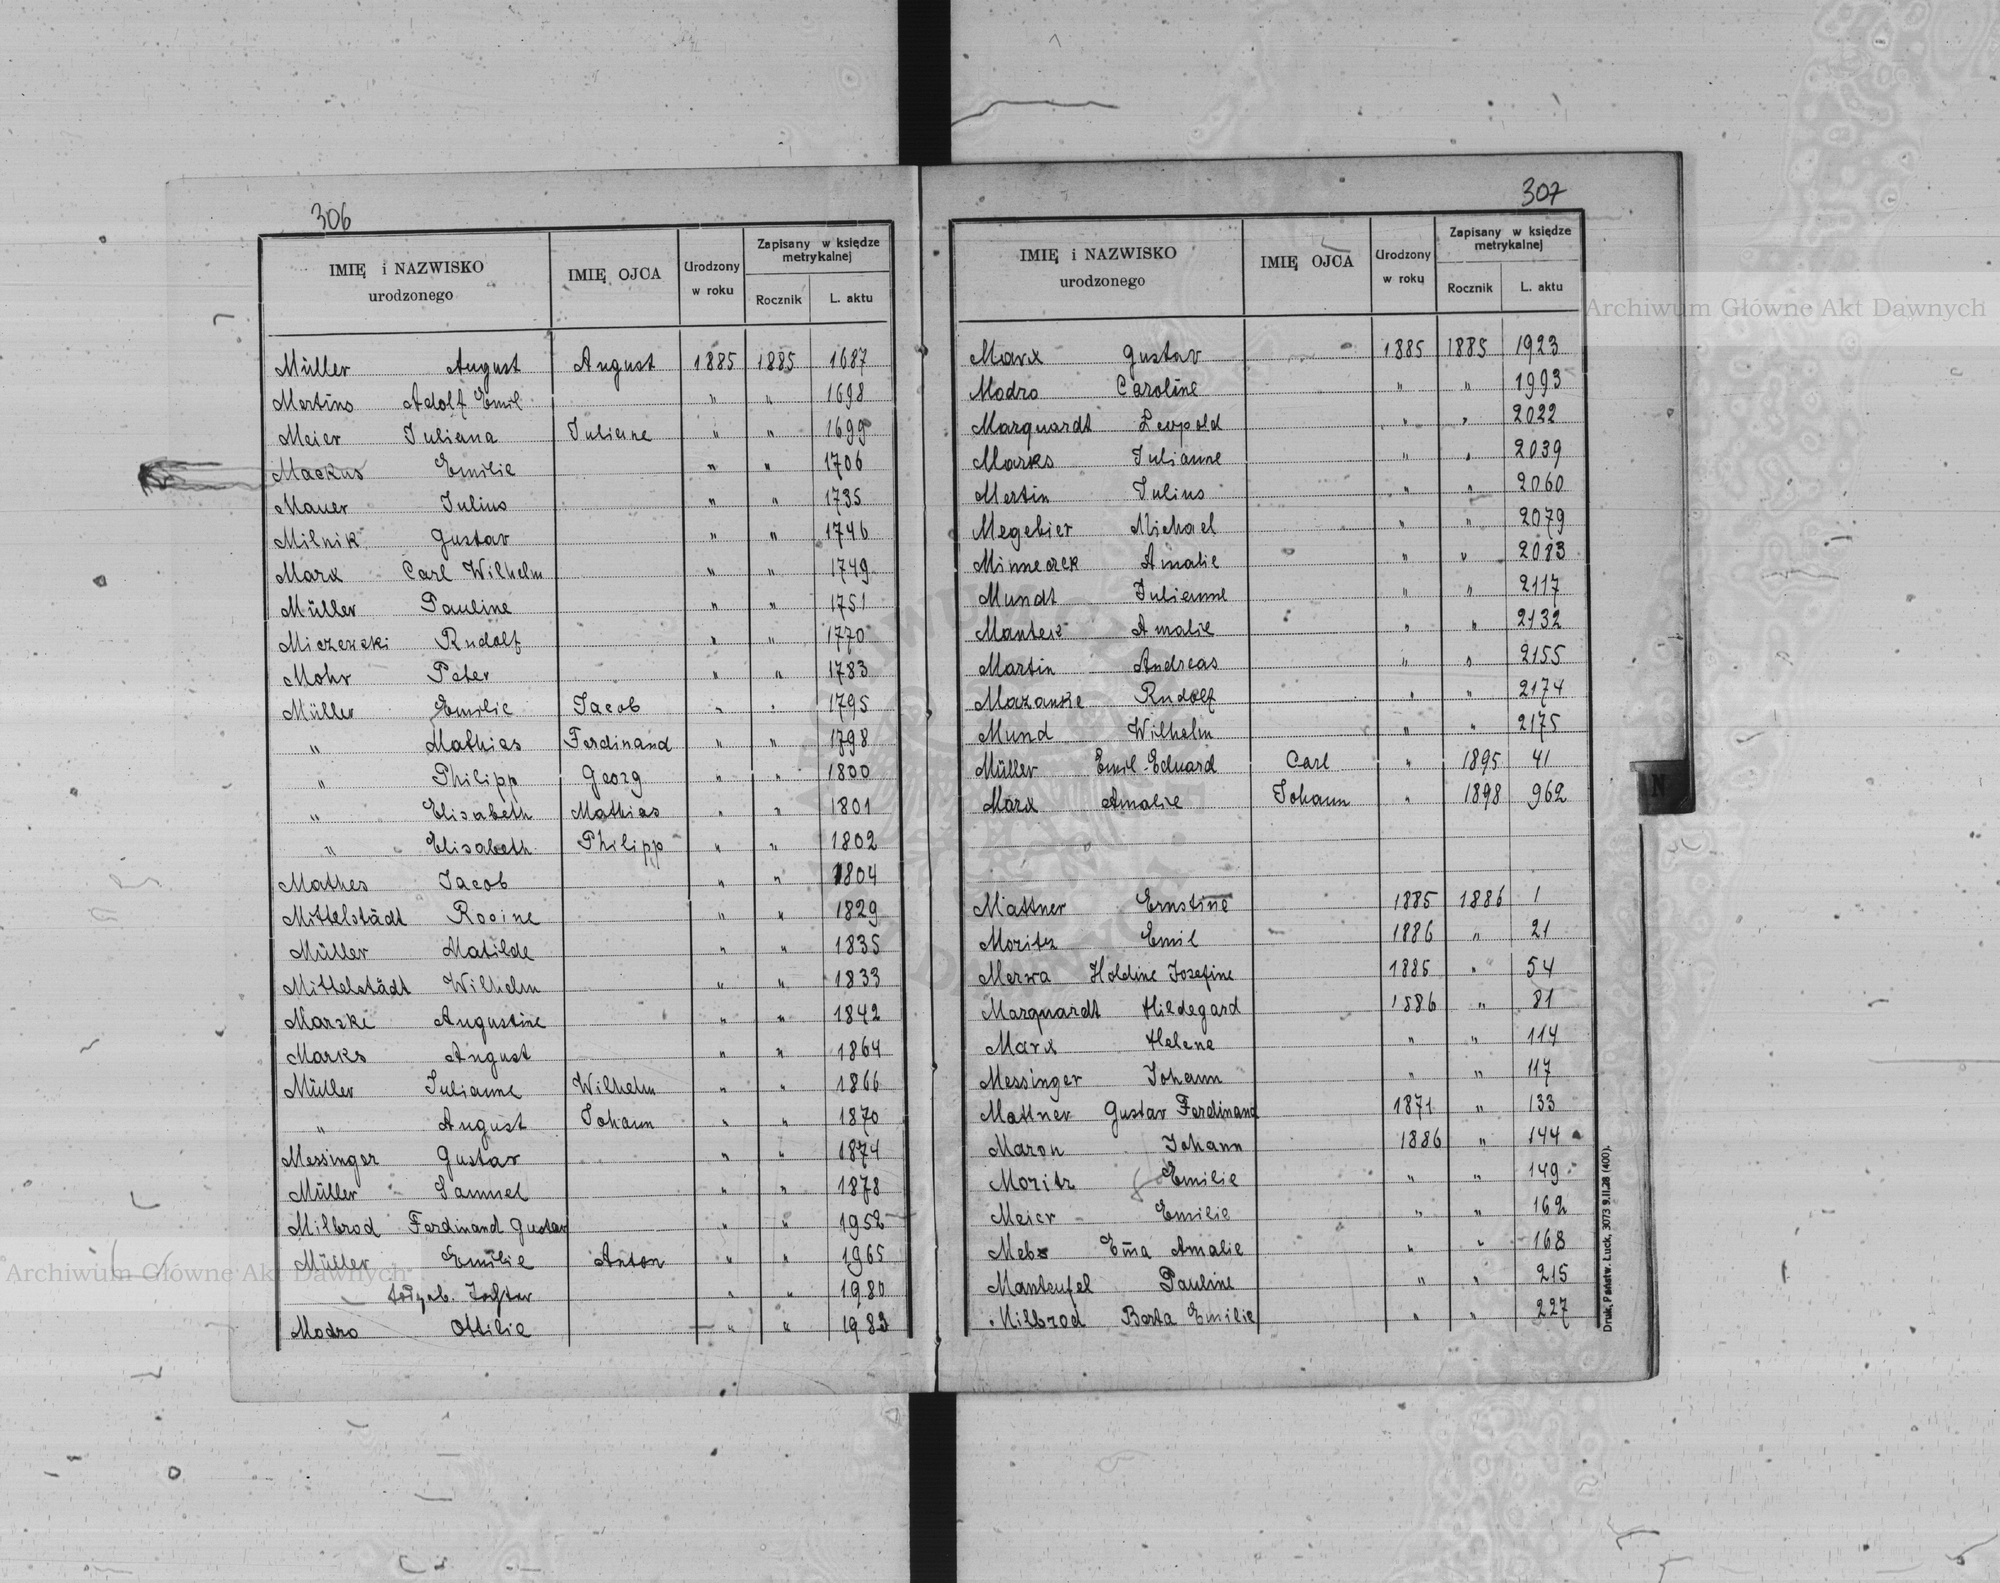 306
IMIĘ i NAZWISKO urodzonego IMIĘ OJCA Urodzony w roku Zapisany w księdze metrykalnej Rocznik L. aktu
Müller August August 1885 1885 1687
Mertins Adolf Emil " " 1698
Meier Juliana Juliane " " 1699
Mackus Emilie " " 1706
Mauer Julius " " 1735
Milnik Gustav " " 1746
Marx Carl Wilhelm " " 1749
Müller Pauline " " 1751
Miczewski Rudolf " " 1770
Mohr Peter " " 1783
Müller Emilie Jacob " " 1795
" Mathias Ferdinand " " 1798
" Philipp Georg " " 1800
" Elisabeth Mathias " " 1801
" Elisabeth Philipp " " 1802
Mathes Jacob " " 1804
Mittelstädt Rosine " " 1829
Müller Matilde " " 1835
Mittelstädt Wilhelm " " 1833
Marske Augustine " " 1842
Marks August " " 1864
Müller Julianne Wilhelm " " 1866
" August Johann " " 1870
Messinger Gustav " " 1874
Müller Samuel " " 1878
Milbrod Ferdinand Gustav " " 1952
Müller Emilie Anton " " 1965
" " 1980
Modro Ottilie " " 1983
307
IMIĘ i NAZWISKO urodzonego IMIĘ OJCA Urodzony w roku Zapisany w księdze metrykalnej Rocznik L. aktu
Marx Gustav 1885 1885 1923
Modro Caroline " " 1993
Marquardt Leopold " " 2022
Marks Julianne " " 2039
Mertin Julius " " 2060
Megebier Michael " " 2079
Amalie " " 2083
Mundt Julianne " " 2117
Amalie " " 2132
Martin Andreas " " 2155
Mazanke Rudolf " " 2174
Mund Wilhelm " " 2175
Müller Emil-Eduard Carl " 1895 41
Marx Amalie Johann " 1898 962
Mattner Ernstine 1885 1886 1
Moritz Emil 1886 " 21
Merwa Holdine Josefine 1885 " 54
Marquardt Hildegard 1886 " 81
Marx Helene " " 114
Messinger Johann " " 117
Mattner Gustav Ferdinand 1871 " 133
Maron Johann 1886 " 144
Moritz Emilie " " 149
Meier Emilie " " 162
Mebs Em̄a Amalie " " 168
Manteufel Pauline " " 215
Milbrod Berta Emilie " " 227
N
Druk. Państw. Łuck, 3073 9.II.28 (400).
Archiwum Główne Akt Dawnych
Archiwum Główne Akt Dawnych